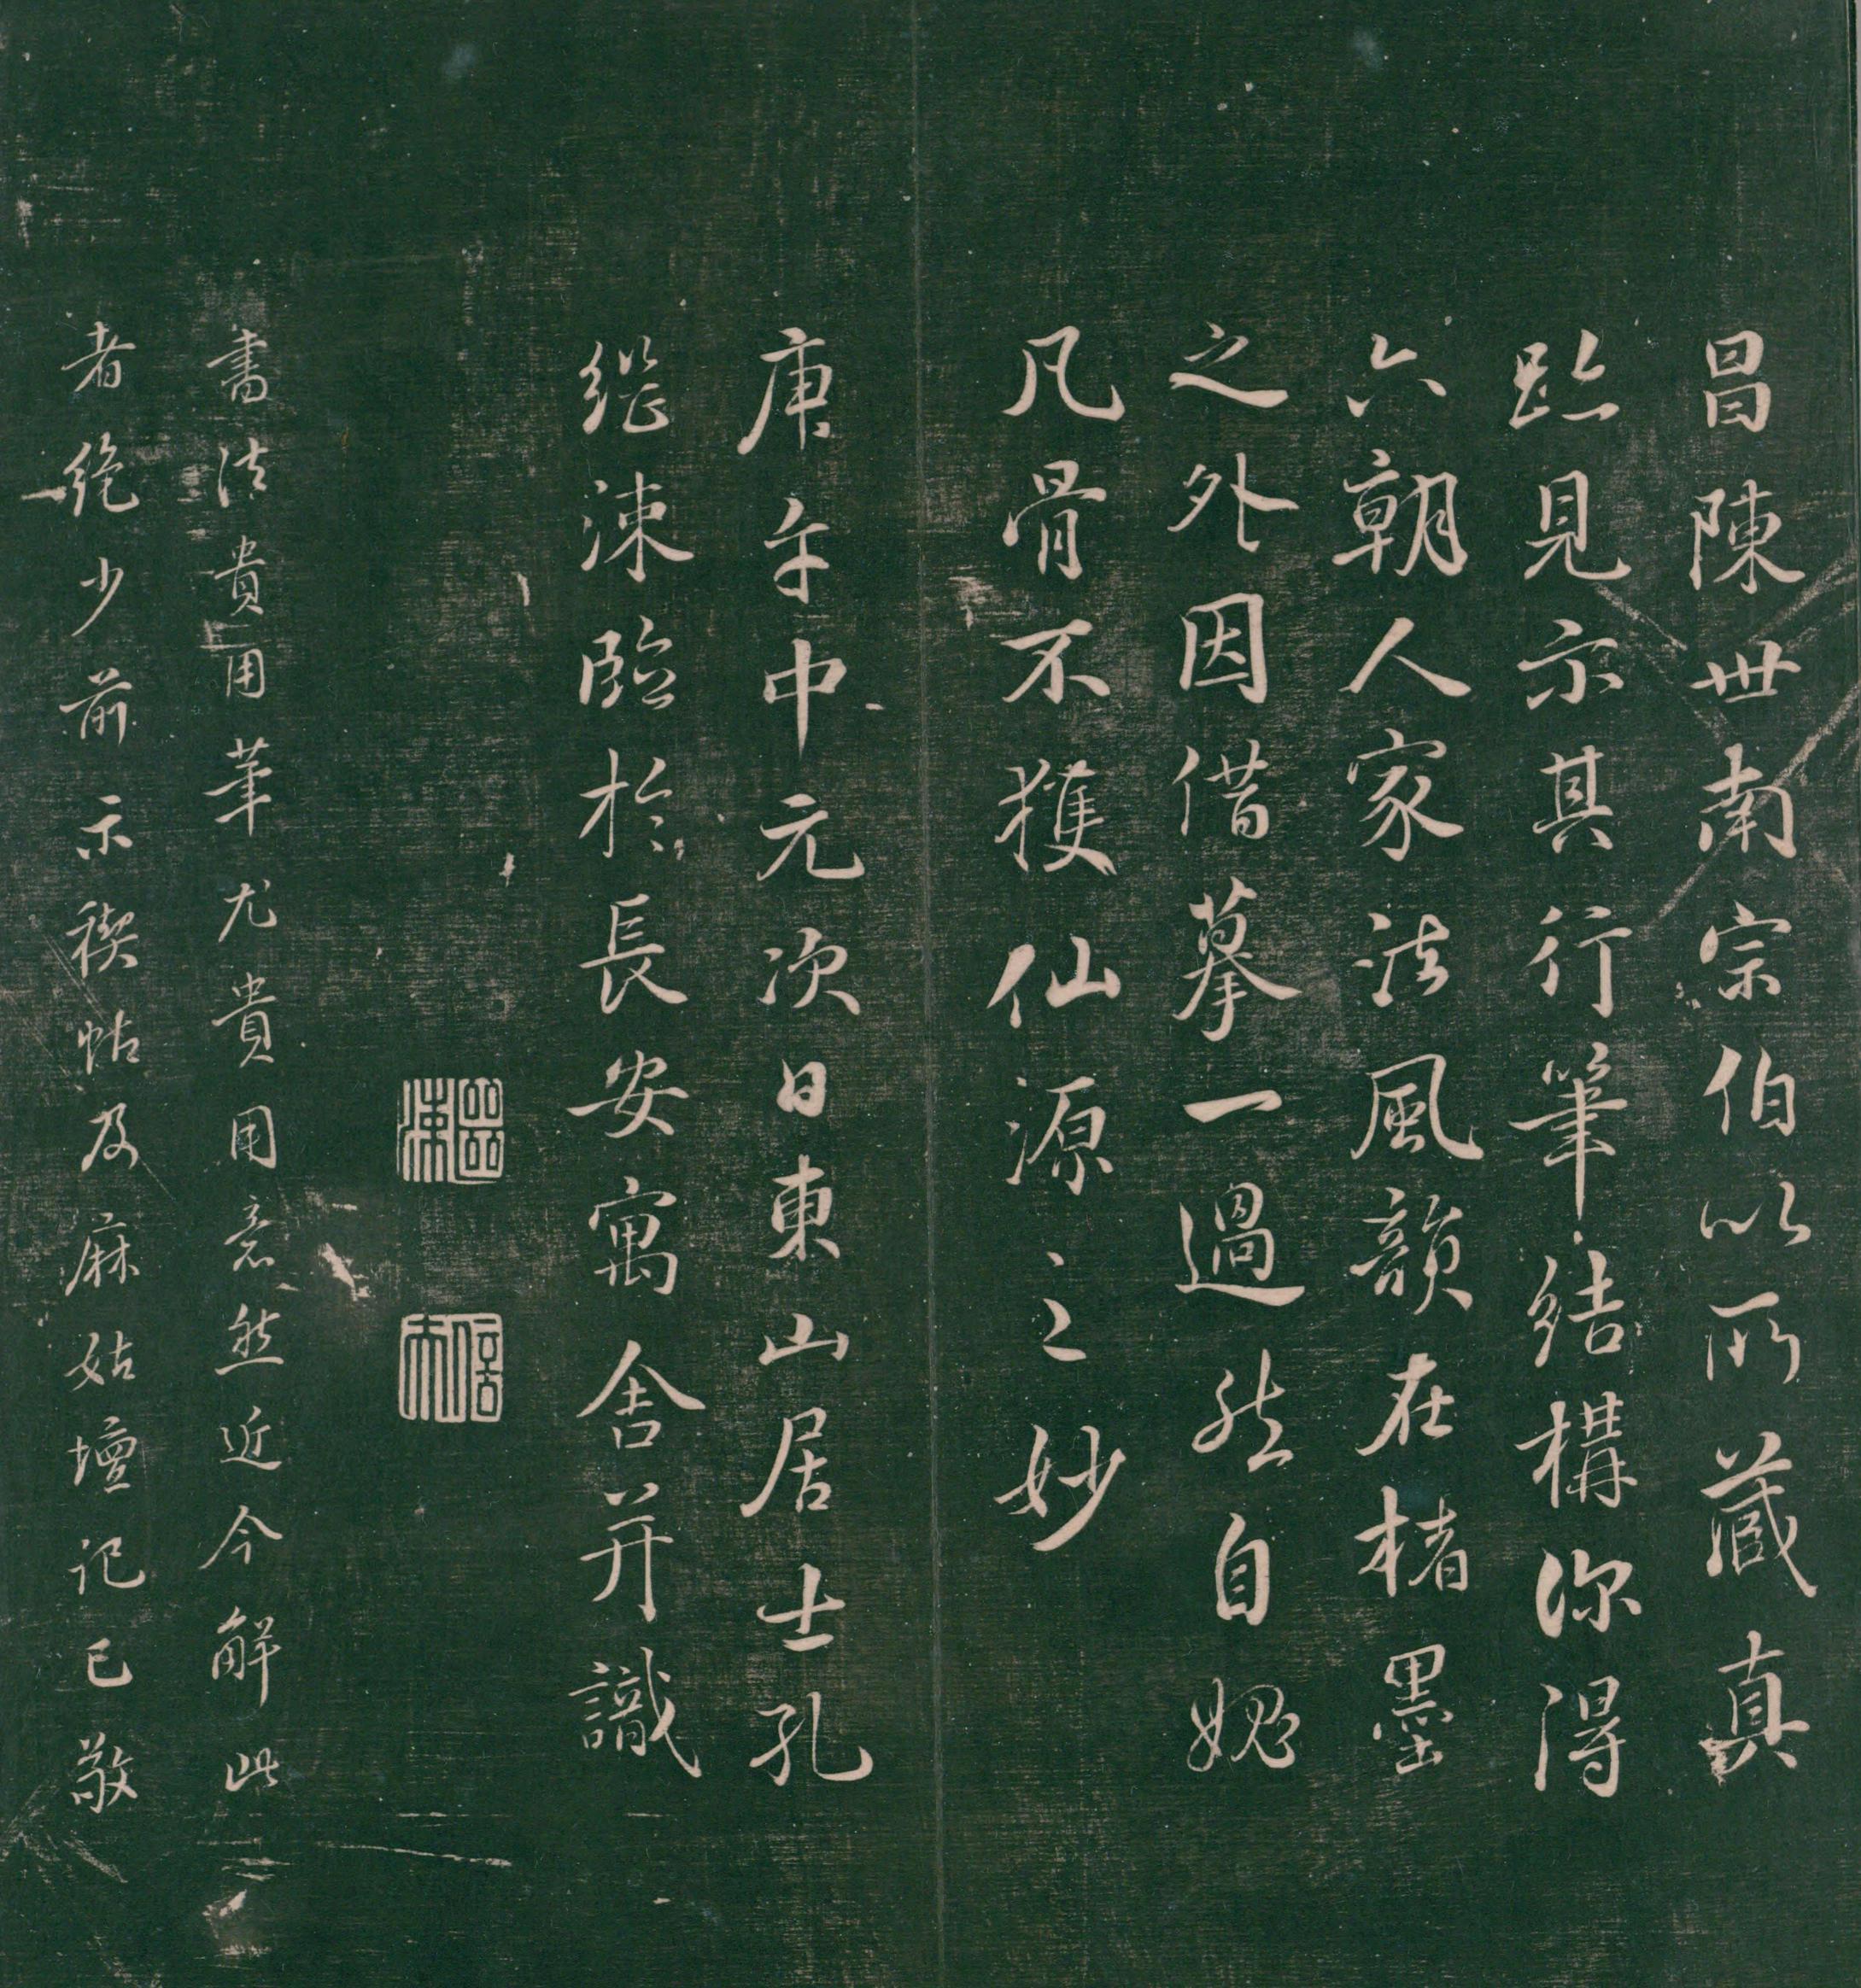 昌陳世南宗伯以所藏真
跡見示其行筆結構深得
六朝人家法風韻在楮墨
之外因借摹一過然自媿
凡骨不獲仙源之之妙
庚午中元次日東山居士孔
继涑臨於長安寓舍并識
继涑
信夫
書法貴用筆尤貴用意然近今解此
者绝少前示禊帖及麻姑壇記已敬